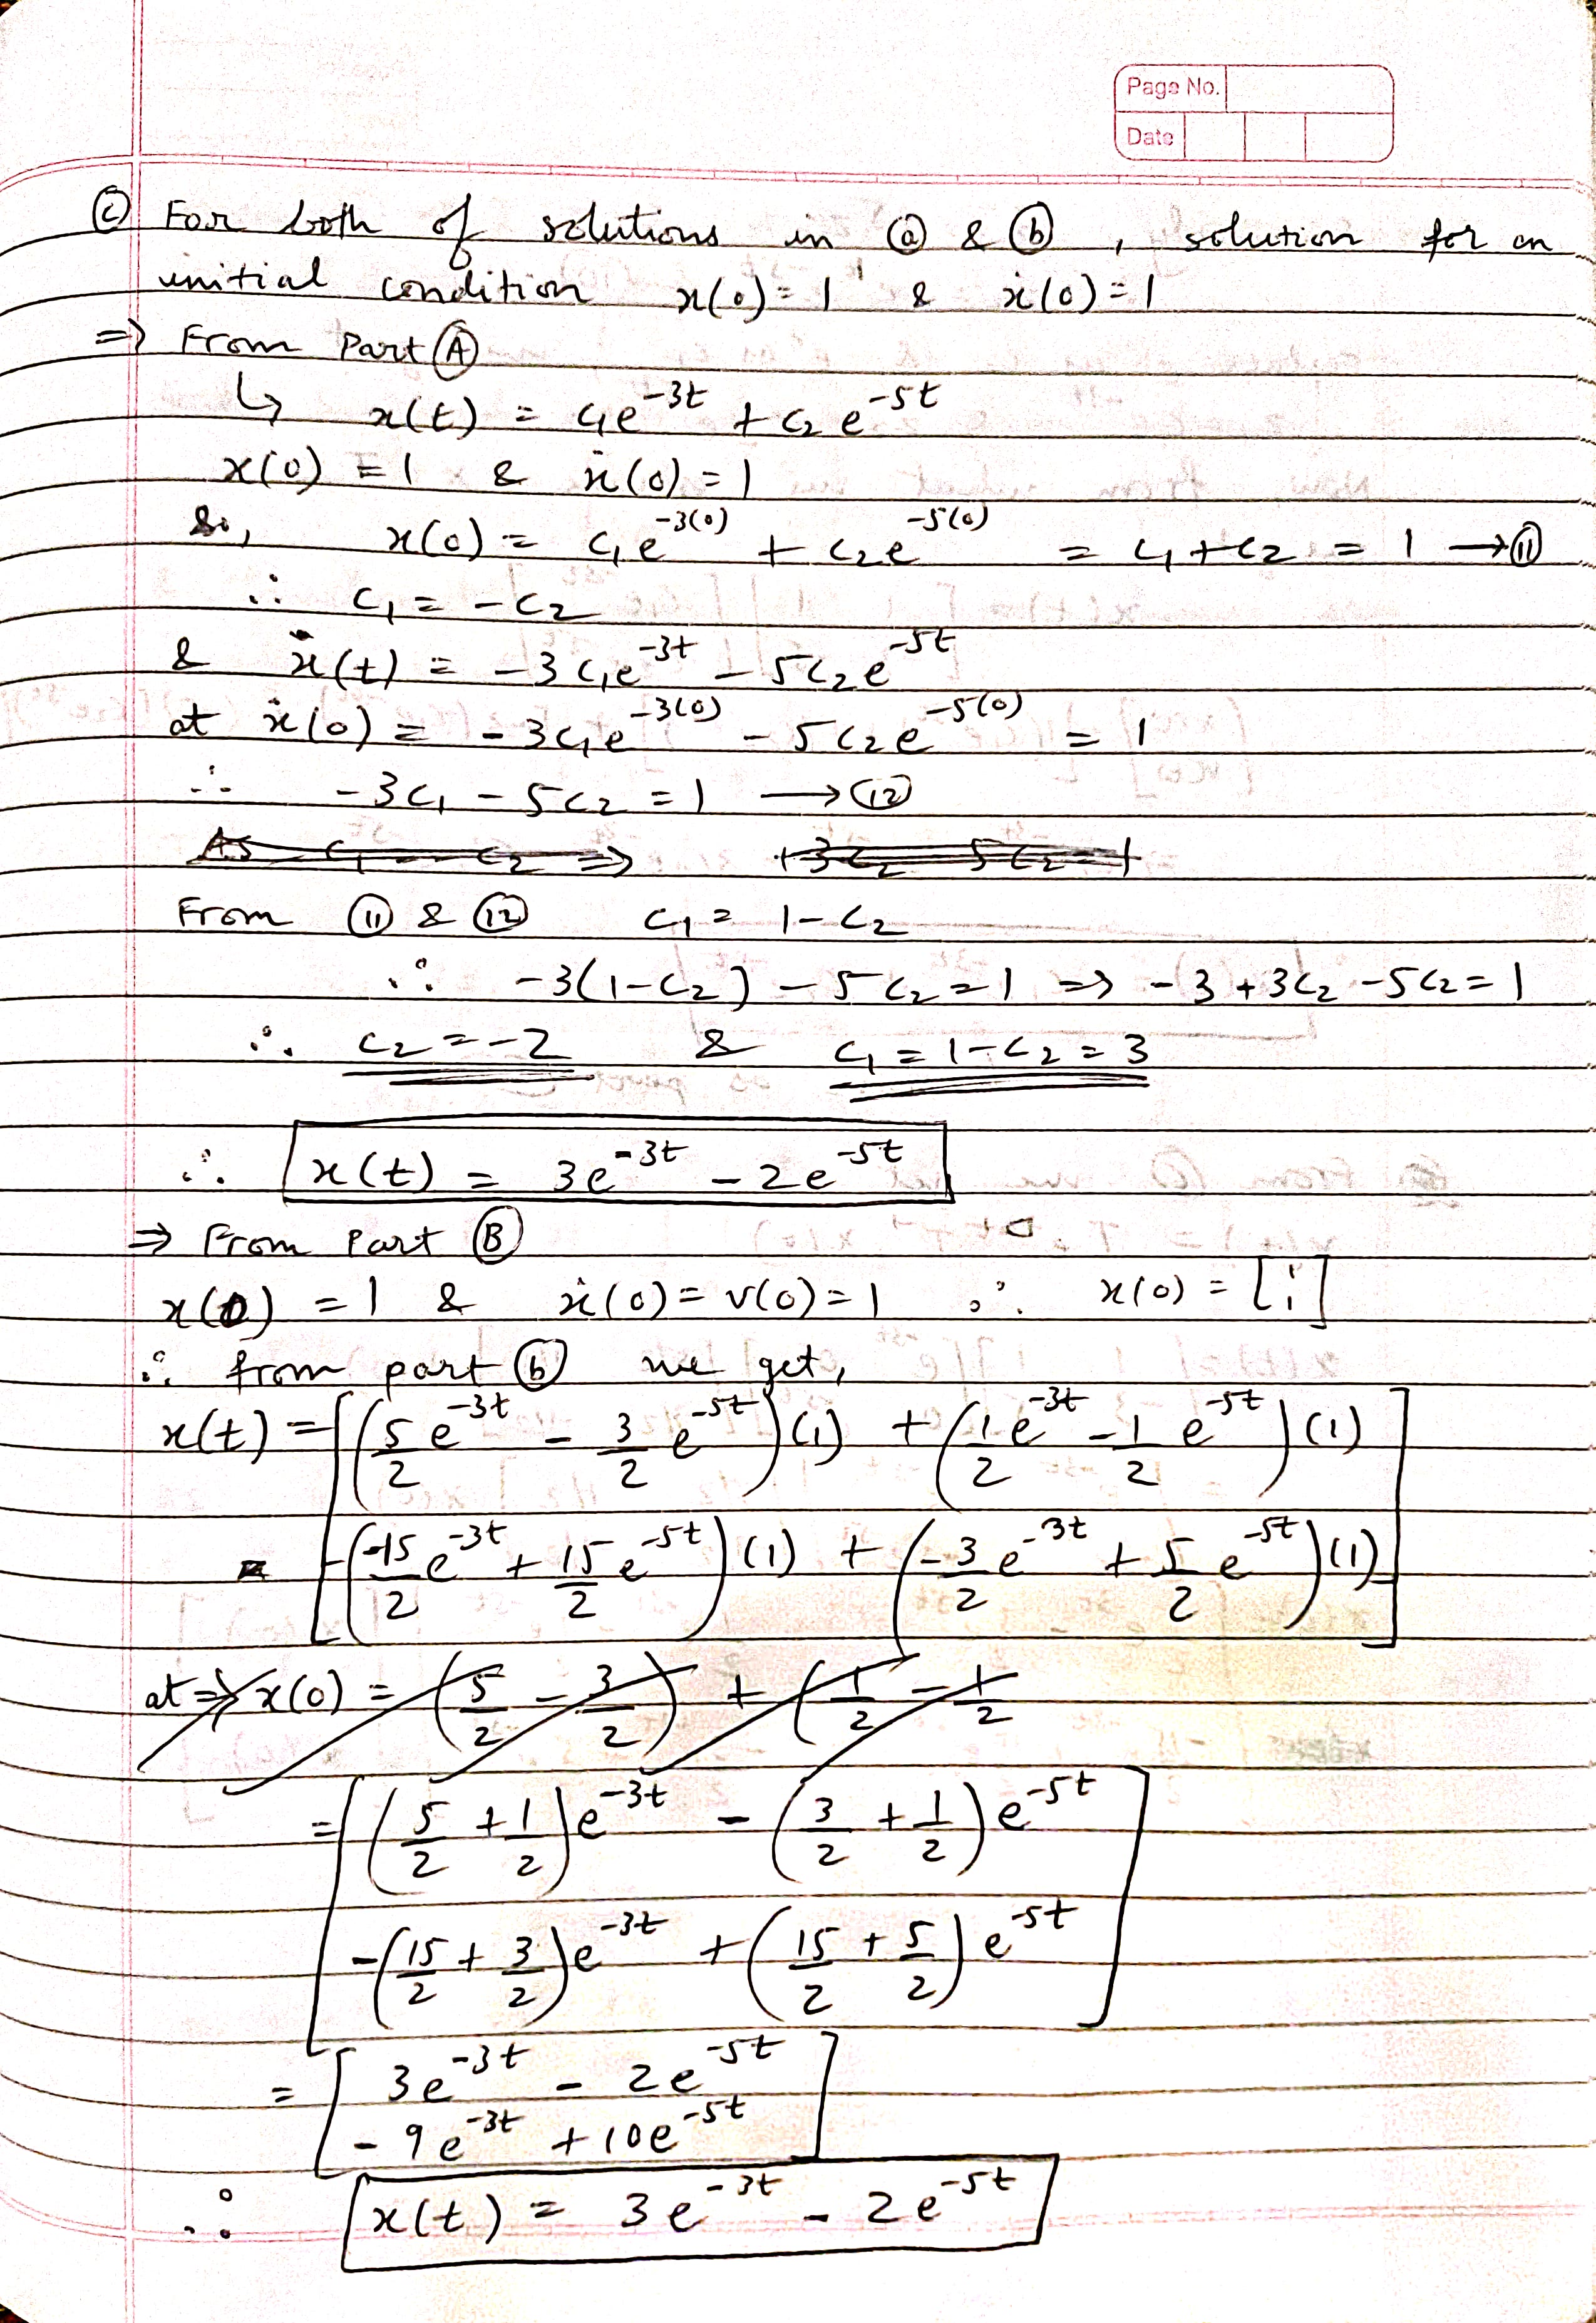 Page No.
Date
(c) For both of solutions in (a) & (b), solution for an
initial condition x(0) = 1 & ẋ(0) = 1
=> From Part (A)
↳ x(t) = c₁e^{-3t} + c₂e^{-5t}
x(0) = 1 & ẋ(0) = 1
So, x(0) = c₁e^{-3(0)} + c₂e^{-5(0)} = c₁ + c₂ = 1 → (11)
∴ c₁ = -c₂
& ẋ(t) = -3c₁e^{-3t} - 5c₂e^{-5t}
at ẋ(0) = -3c₁e^{-3(0)} - 5c₂e^{-5(0)} = 1
∴ -3c₁ - 5c₂ = 1 → (12)
As c₁ = -c₂ => +3c₂ - 5c₂ = 1
From (11) & (12) c₁ = 1-c₂
∴ -3(1-c₂) - 5c₂ = 1 => -3 + 3c₂ - 5c₂ = 1
∴ c₂ = -2 & c₁ = 1-c₂ = 3
∴ x(t) = 3e^{-3t} - 2e^{-5t}
=> From Part (B)
x(0) = 1 & ẋ(0) = v(0) = 1 ∴ x(0) = [1; 1]
∴ from part (b) we get,
x(t) = [(5/2 e^{-3t} - 3/2 e^{-5t})(1) + (1/2 e^{-3t} - 1/2 e^{-5t})(1)
(-15/2 e^{-3t} + 15/2 e^{-5t})(1) + (-3/2 e^{-3t} + 5/2 e^{-5t})(1)]
at => x(0) = (5/2 - 3/2) + (1/2 - 1/2
= [(5/2 + 1/2)e^{-3t} - (3/2 + 1/2)e^{-5t}
-(15/2 + 3/2)e^{-3t} + (15/2 + 5/2)e^{-5t}]
= [3e^{-3t} - 2e^{-5t}
-9e^{-3t} + 10e^{-5t}]
∴ x(t) = 3e^{-3t} - 2e^{-5t}